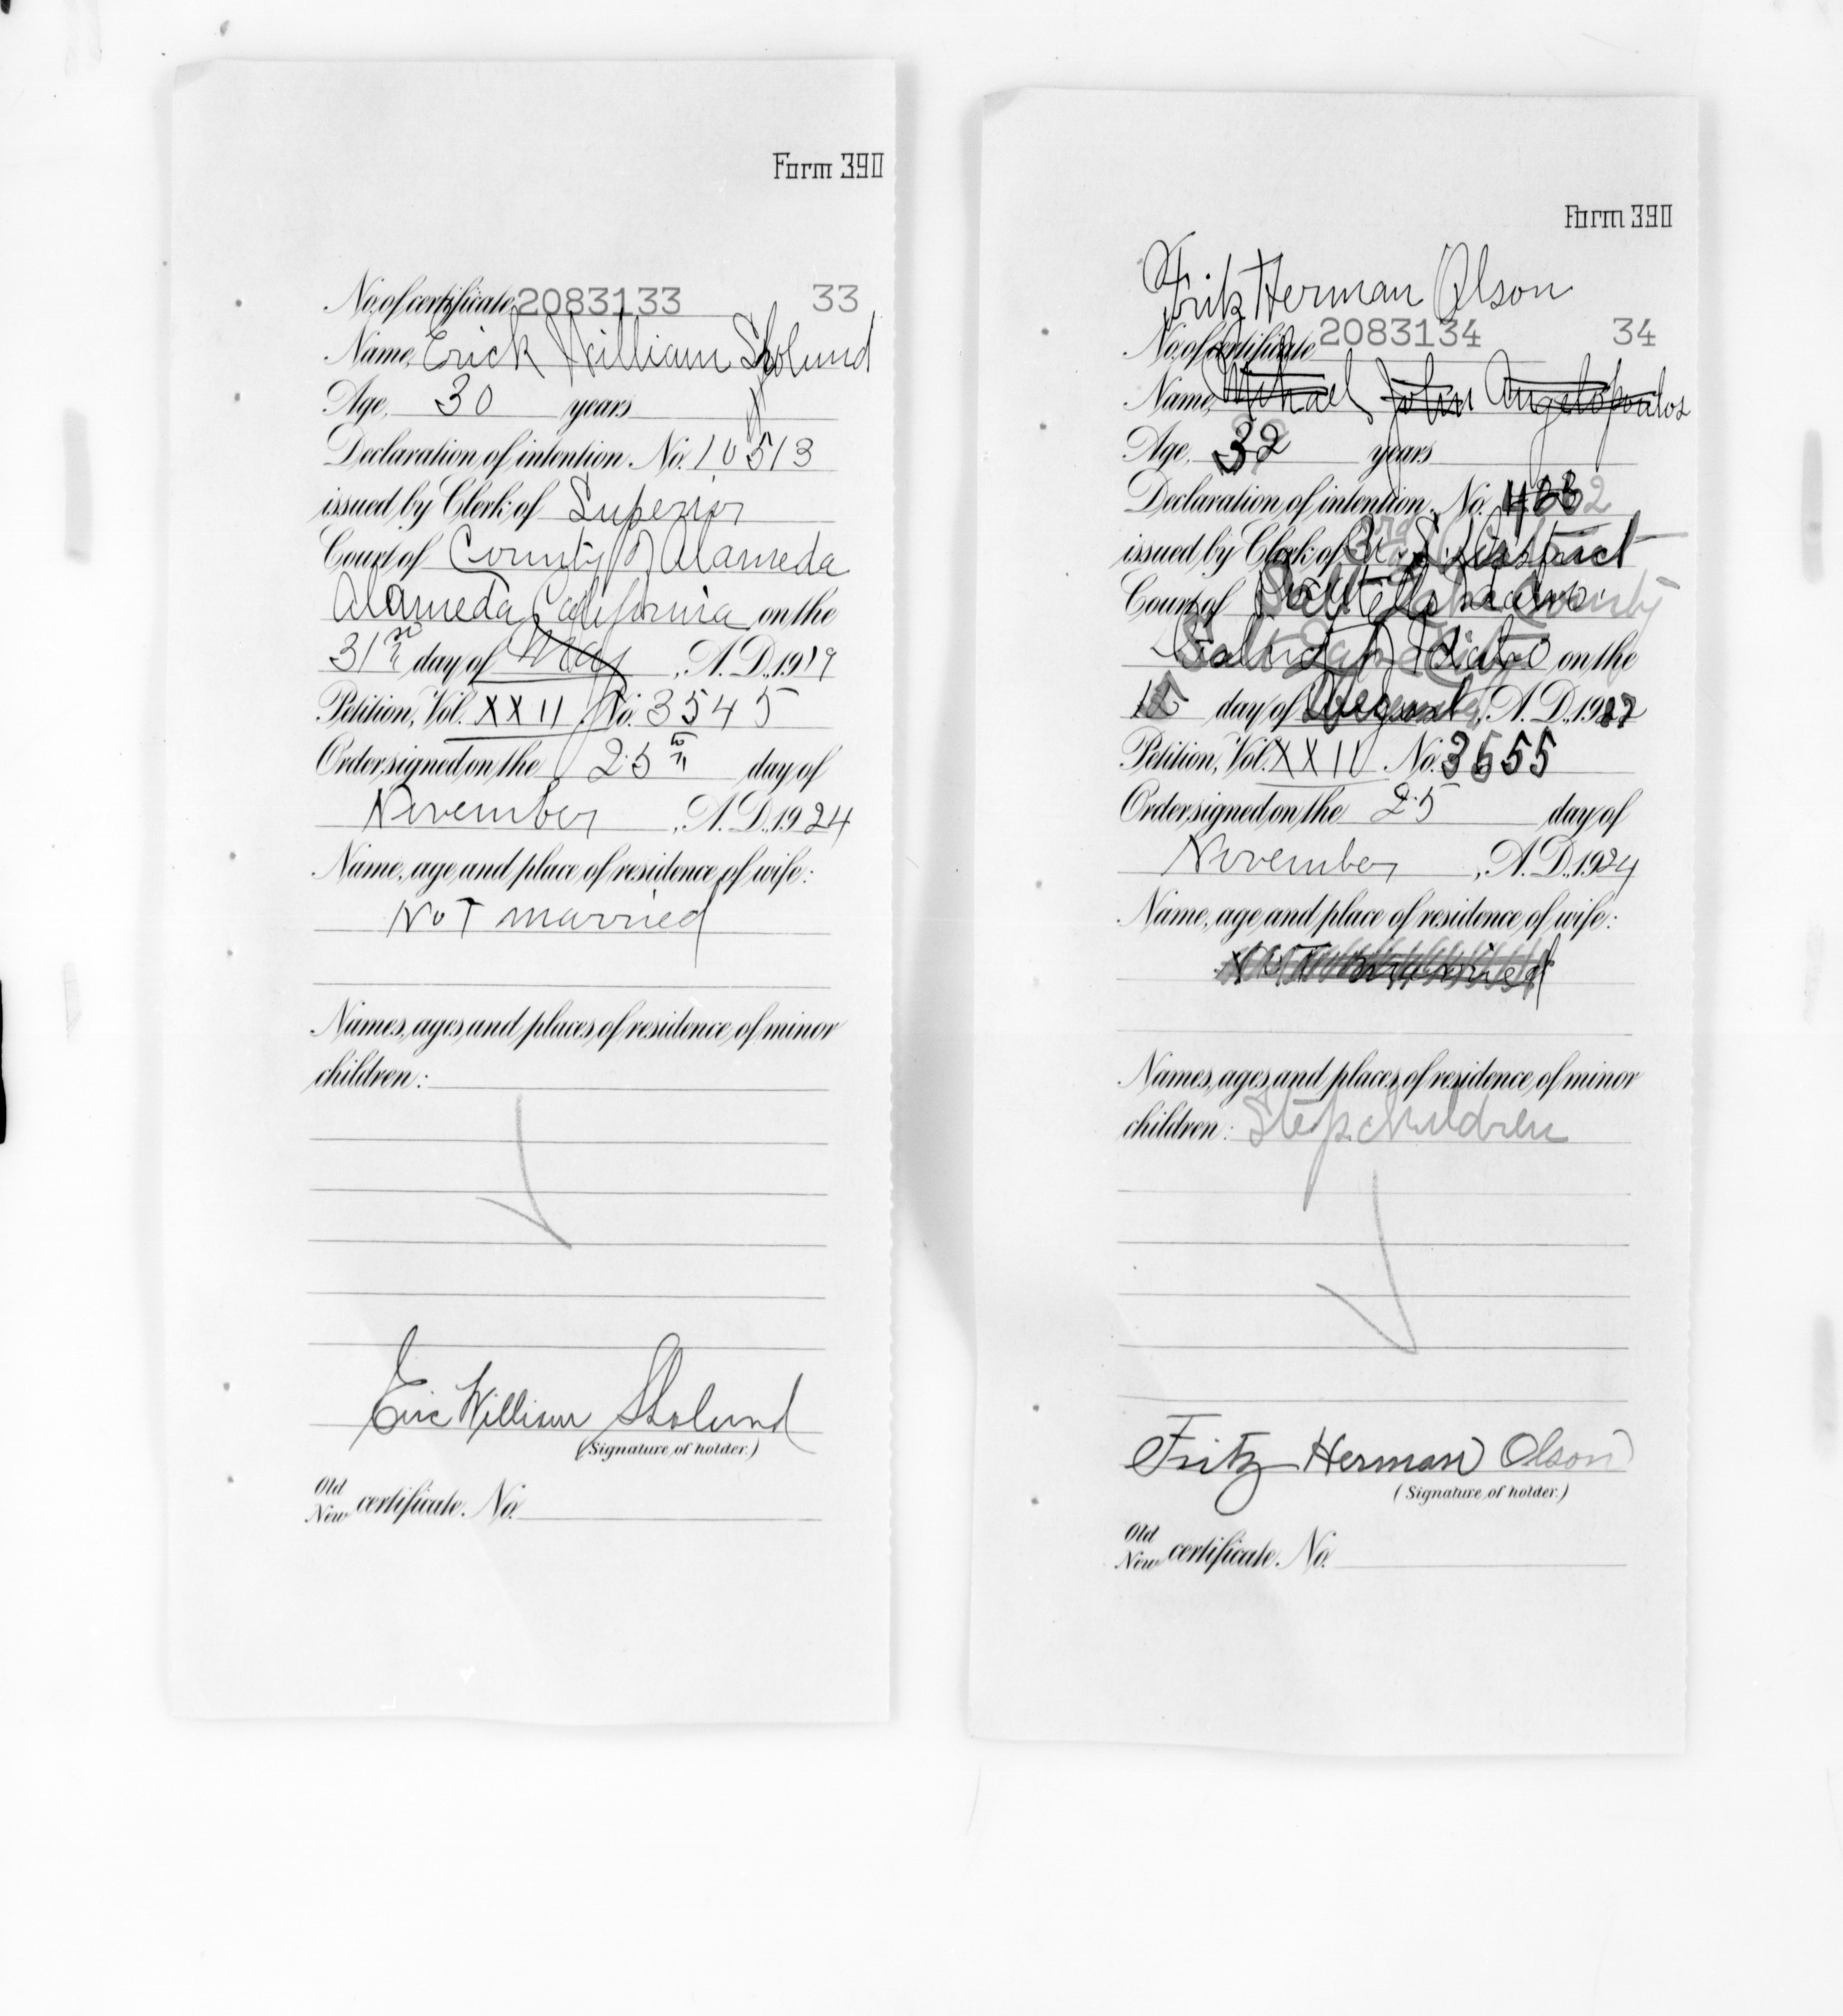 Form 390
No. of certificate 2083133 33
Name, Erick William Sholund
Age, 30 years
Declaration of intention. No. 10513
issued by Clerk of Superior
Court of County of Alameda
Alameda California on the
31st day of May, A. D., 1919
Petition, Vol. XXII. No. 3545
Order, signed on the 25th day of
November, A. D., 1924
Name, age and place of residence of wife:
Not married
Names, ages and places of residence of minor
children:
Eric William Sholund
(Signature of holder.)
Old
New certificate. No.
Form 390
Fritz Herman Olson
No. of certificate 2083134 34
Name, Mihael John Angelopoulos
Age, 32 years
Declaration of intention. No.
issued by Clerk of District
Court of
on the
day of , A. D., 19
Petition, Vol. XXII. No. 3655
Order, signed on the 25 day of
November, A. D., 1924
Name, age and place of residence of wife:
Not married
Names, ages and places of residence of minor
children: Stepchildren
Fritz Herman Olson
(Signature of holder.)
Old
New certificate. No.